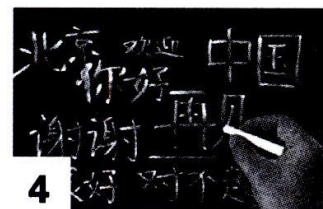 北京 欢迎 中国
你好
谢谢 再见
好 对不
4